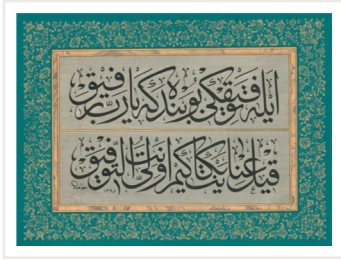 ايله توفيقكى بو بنده كه يا رب رفيق
قيل عنايت بكا كيم انت ولى التوفيق